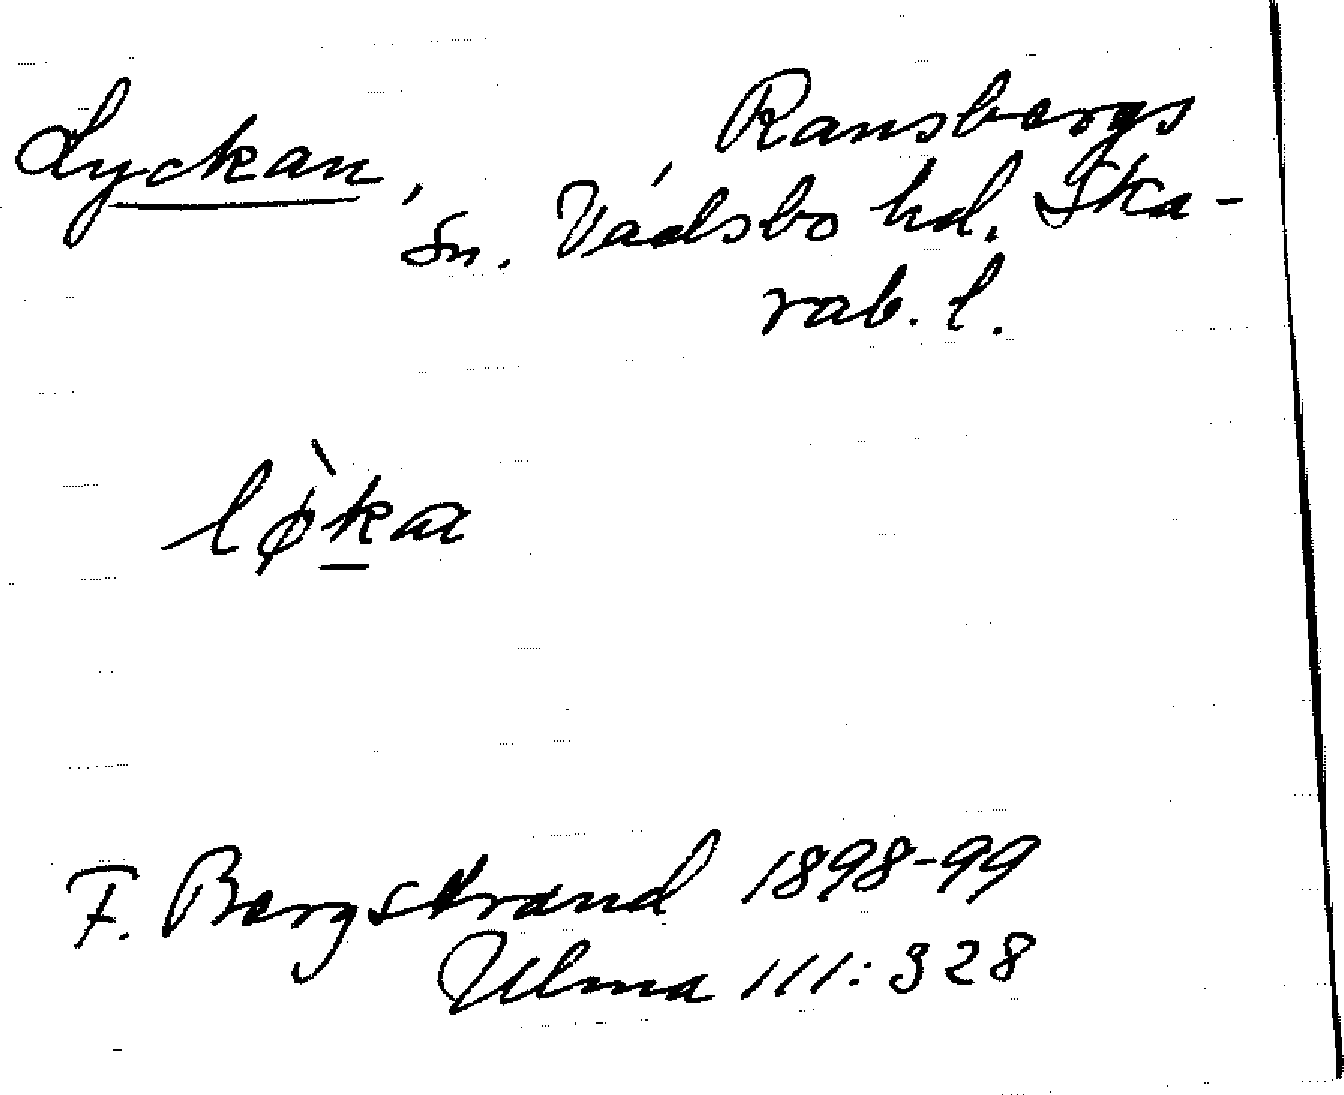 Lyckan, Ransbergs
sn. Vadsbo hd. Ska-
rab. l.
lø̀ka
F. Bergstrand 1898-99
Ulma 111:328